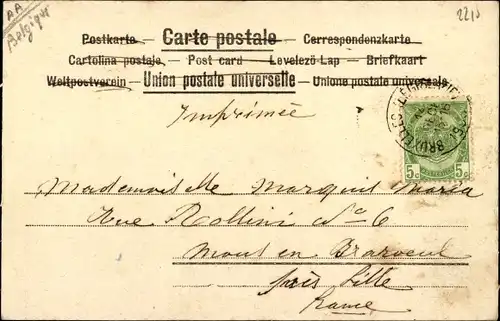 AA
Belgique
2215
Postkarte — Carte postale — Correspondenzkarte
Cartolina postale — Post card — Levelező-Lap — Briefkaart
Weltpostverein — Union postale universelle — Unione postale universale
Imprimée
BRUXELLES
5c 5c
Mademoiselle Marquis Maria
Rue Rollini No 6
Mons en Baroeul
près Lille